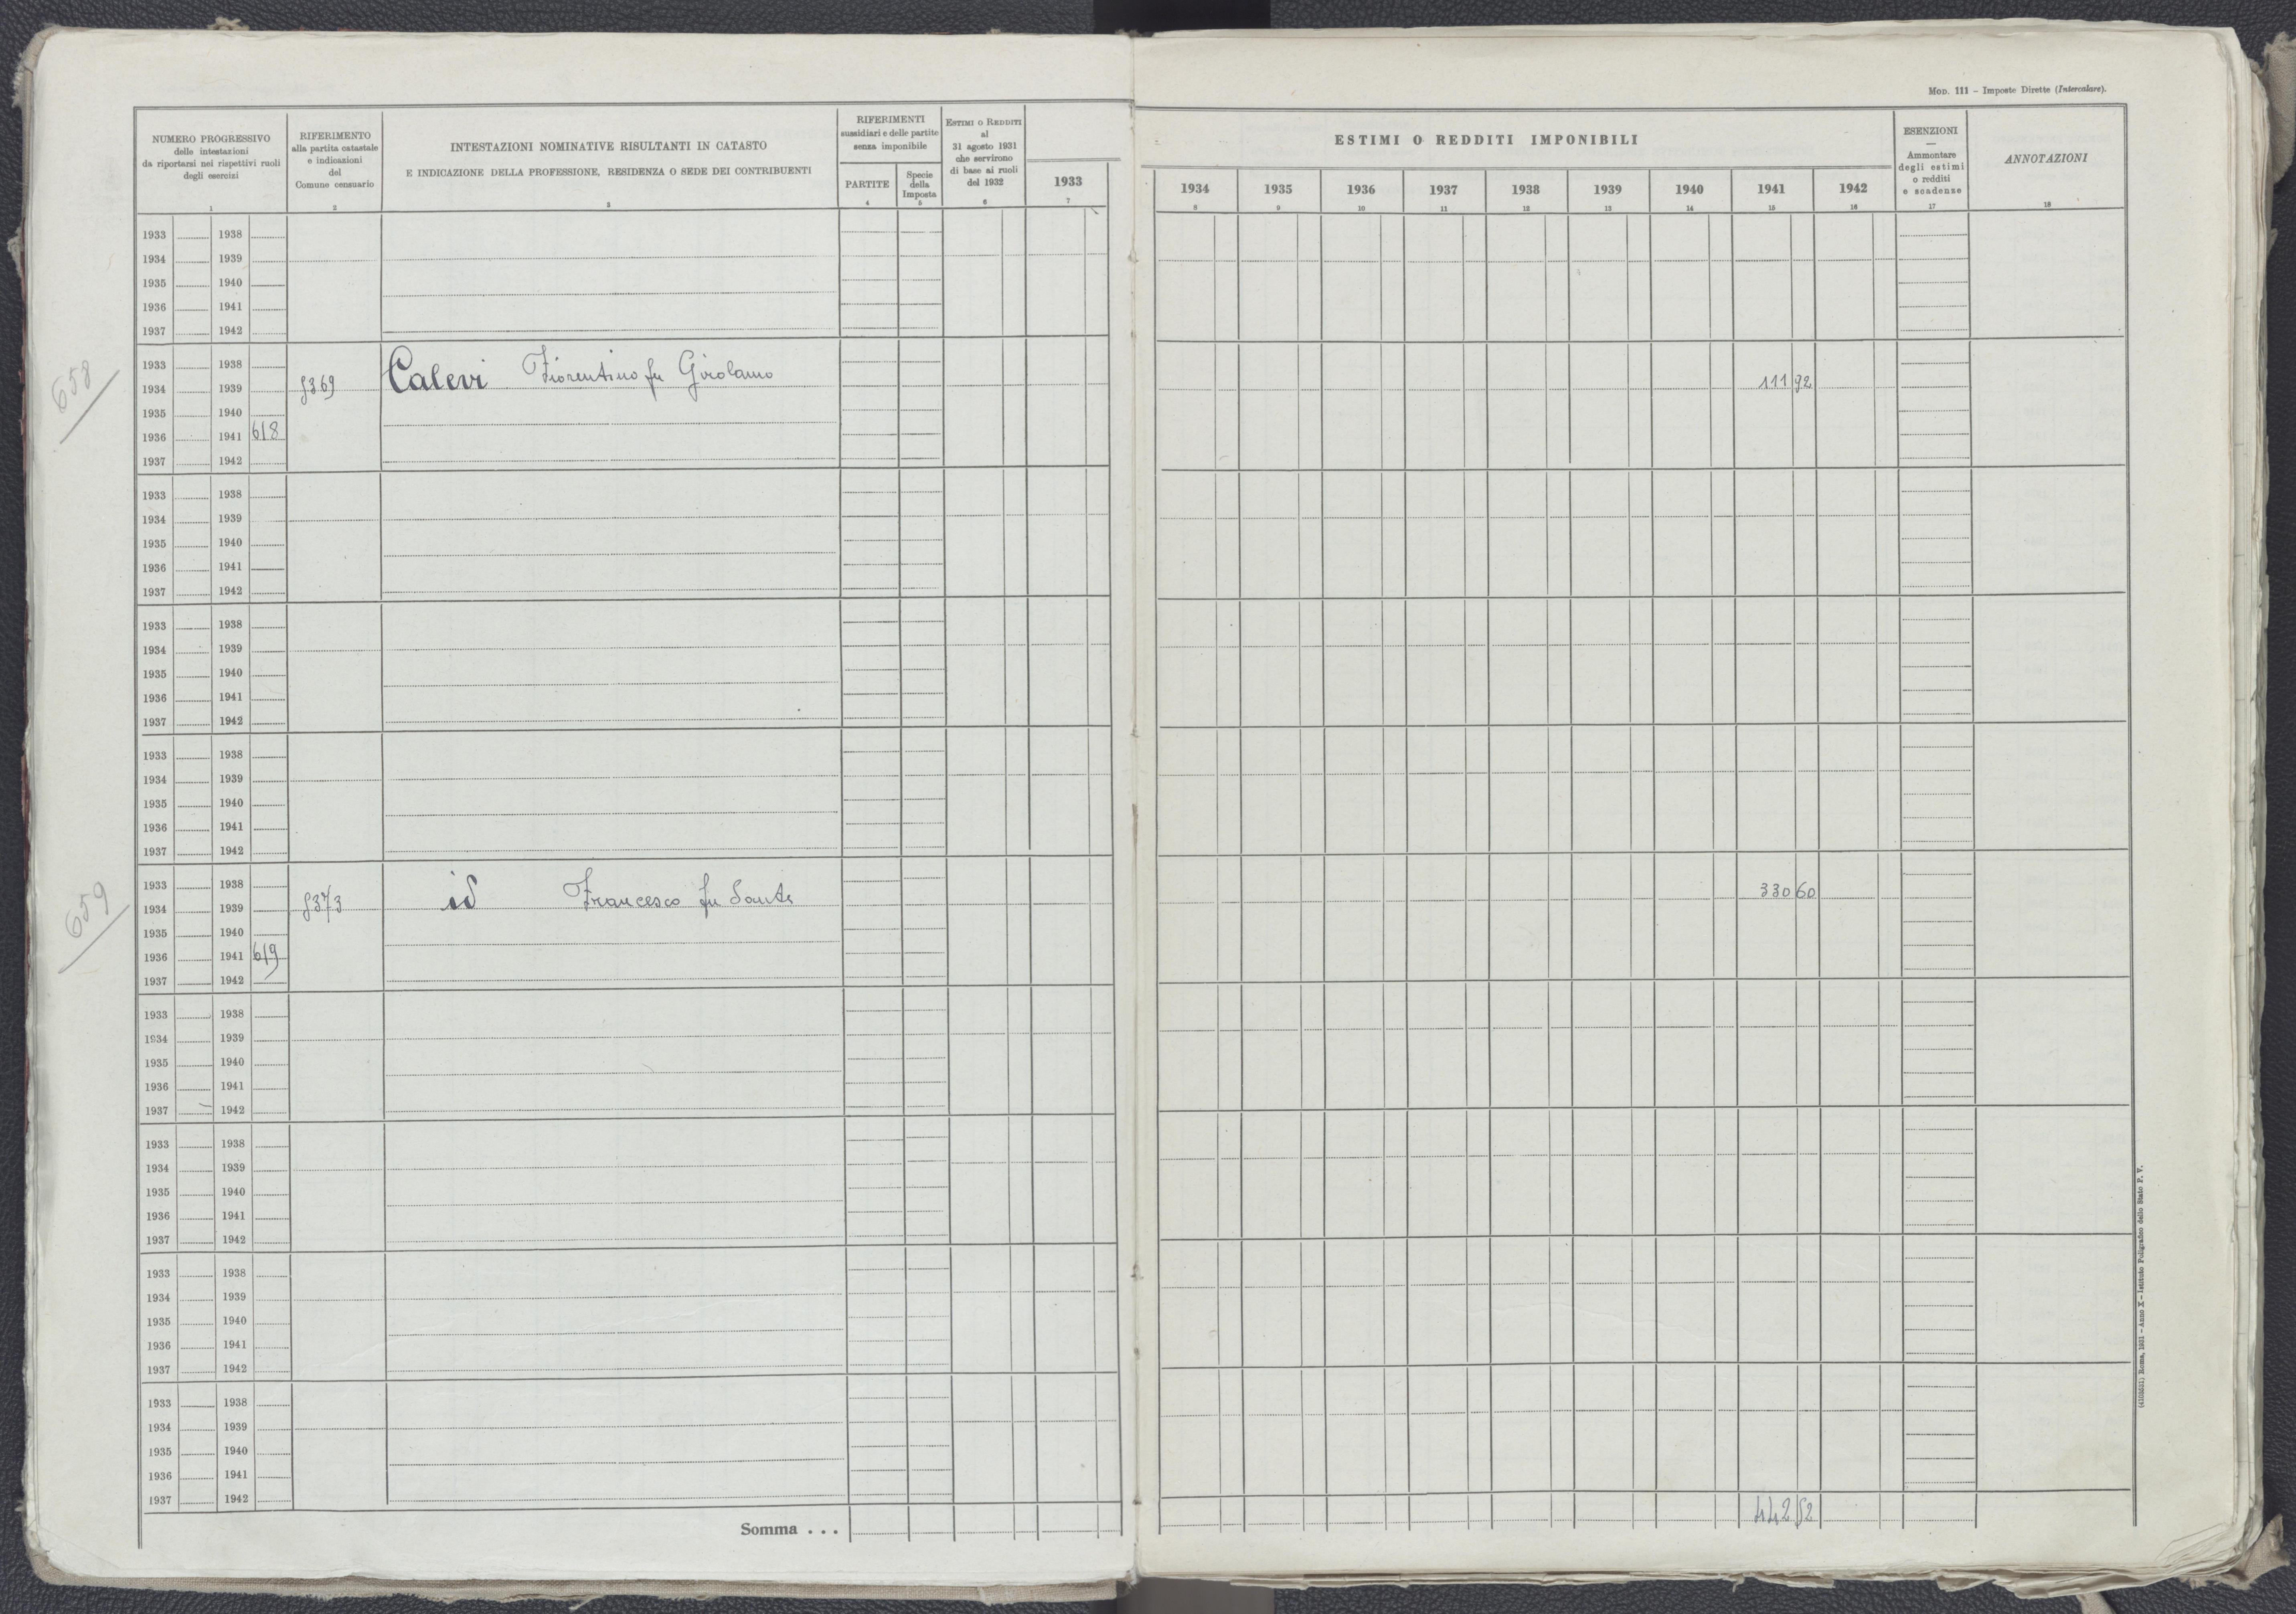 Mod. 111 – Imposte Dirette (Intercalare).
NUMERO PROGRESSIVO
delle intestazioni
da riportarsi nei rispettivi ruoli
degli esercizi
1
RIFERIMENTO
alla partita catastale
e indicazioni
del
Comune censuario
2
INTESTAZIONI NOMINATIVE RISULTANTI IN CATASTO
E INDICAZIONE DELLA PROFESSIONE, RESIDENZA O SEDE DEI CONTRIBUENTI
3
RIFERIMENTI
sussidiari e delle partite
senza imponibile
PARTITE
4
Specie
della
Imposta
5
Estimi o Redditi
al
31 agosto 1931
che servirono
di base ai ruoli
del 1932
6
1933
7
ESTIMI O REDDITI IMPONIBILI
1934 1935 1936 1937 1938 1939 1940 1941 1942
8 9 10 11 12 13 14 15 16
ESENZIONI
—
Ammontare
degli estimi
o redditi
e scadenze
17
ANNOTAZIONI
18
1933 1938
1934 1939
1935 1940
1936 1941
1937 1942
658
1933 1938
1934 1939 8369 Calevi Fiorentino fu Girolamo 111 92
1935 1940
1936 1941 618
1937 1942
1933 1938
1934 1939
1935 1940
1936 1941
1937 1942
1933 1938
1934 1939
1935 1940
1936 1941
1937 1942
1933 1938
1934 1939
1935 1940
1936 1941
1937 1942
659
1933 1938
1934 1939 8373 id Francesco fu Sante 330 60
1935 1940
1936 1941 619
1937 1942
1933 1938
1934 1939
1935 1940
1936 1941
1937 1942
1933 1938
1934 1939
1935 1940
1936 1941
1937 1942
1933 1938
1934 1939
1935 1940
1936 1941
1937 1942
1933 1938
1934 1939
1935 1940
1936 1941
1937 1942
Somma . . . 442 52
(4103631) Roma, 1931 – Anno X – Istituto Poligrafico dello Stato P. V.